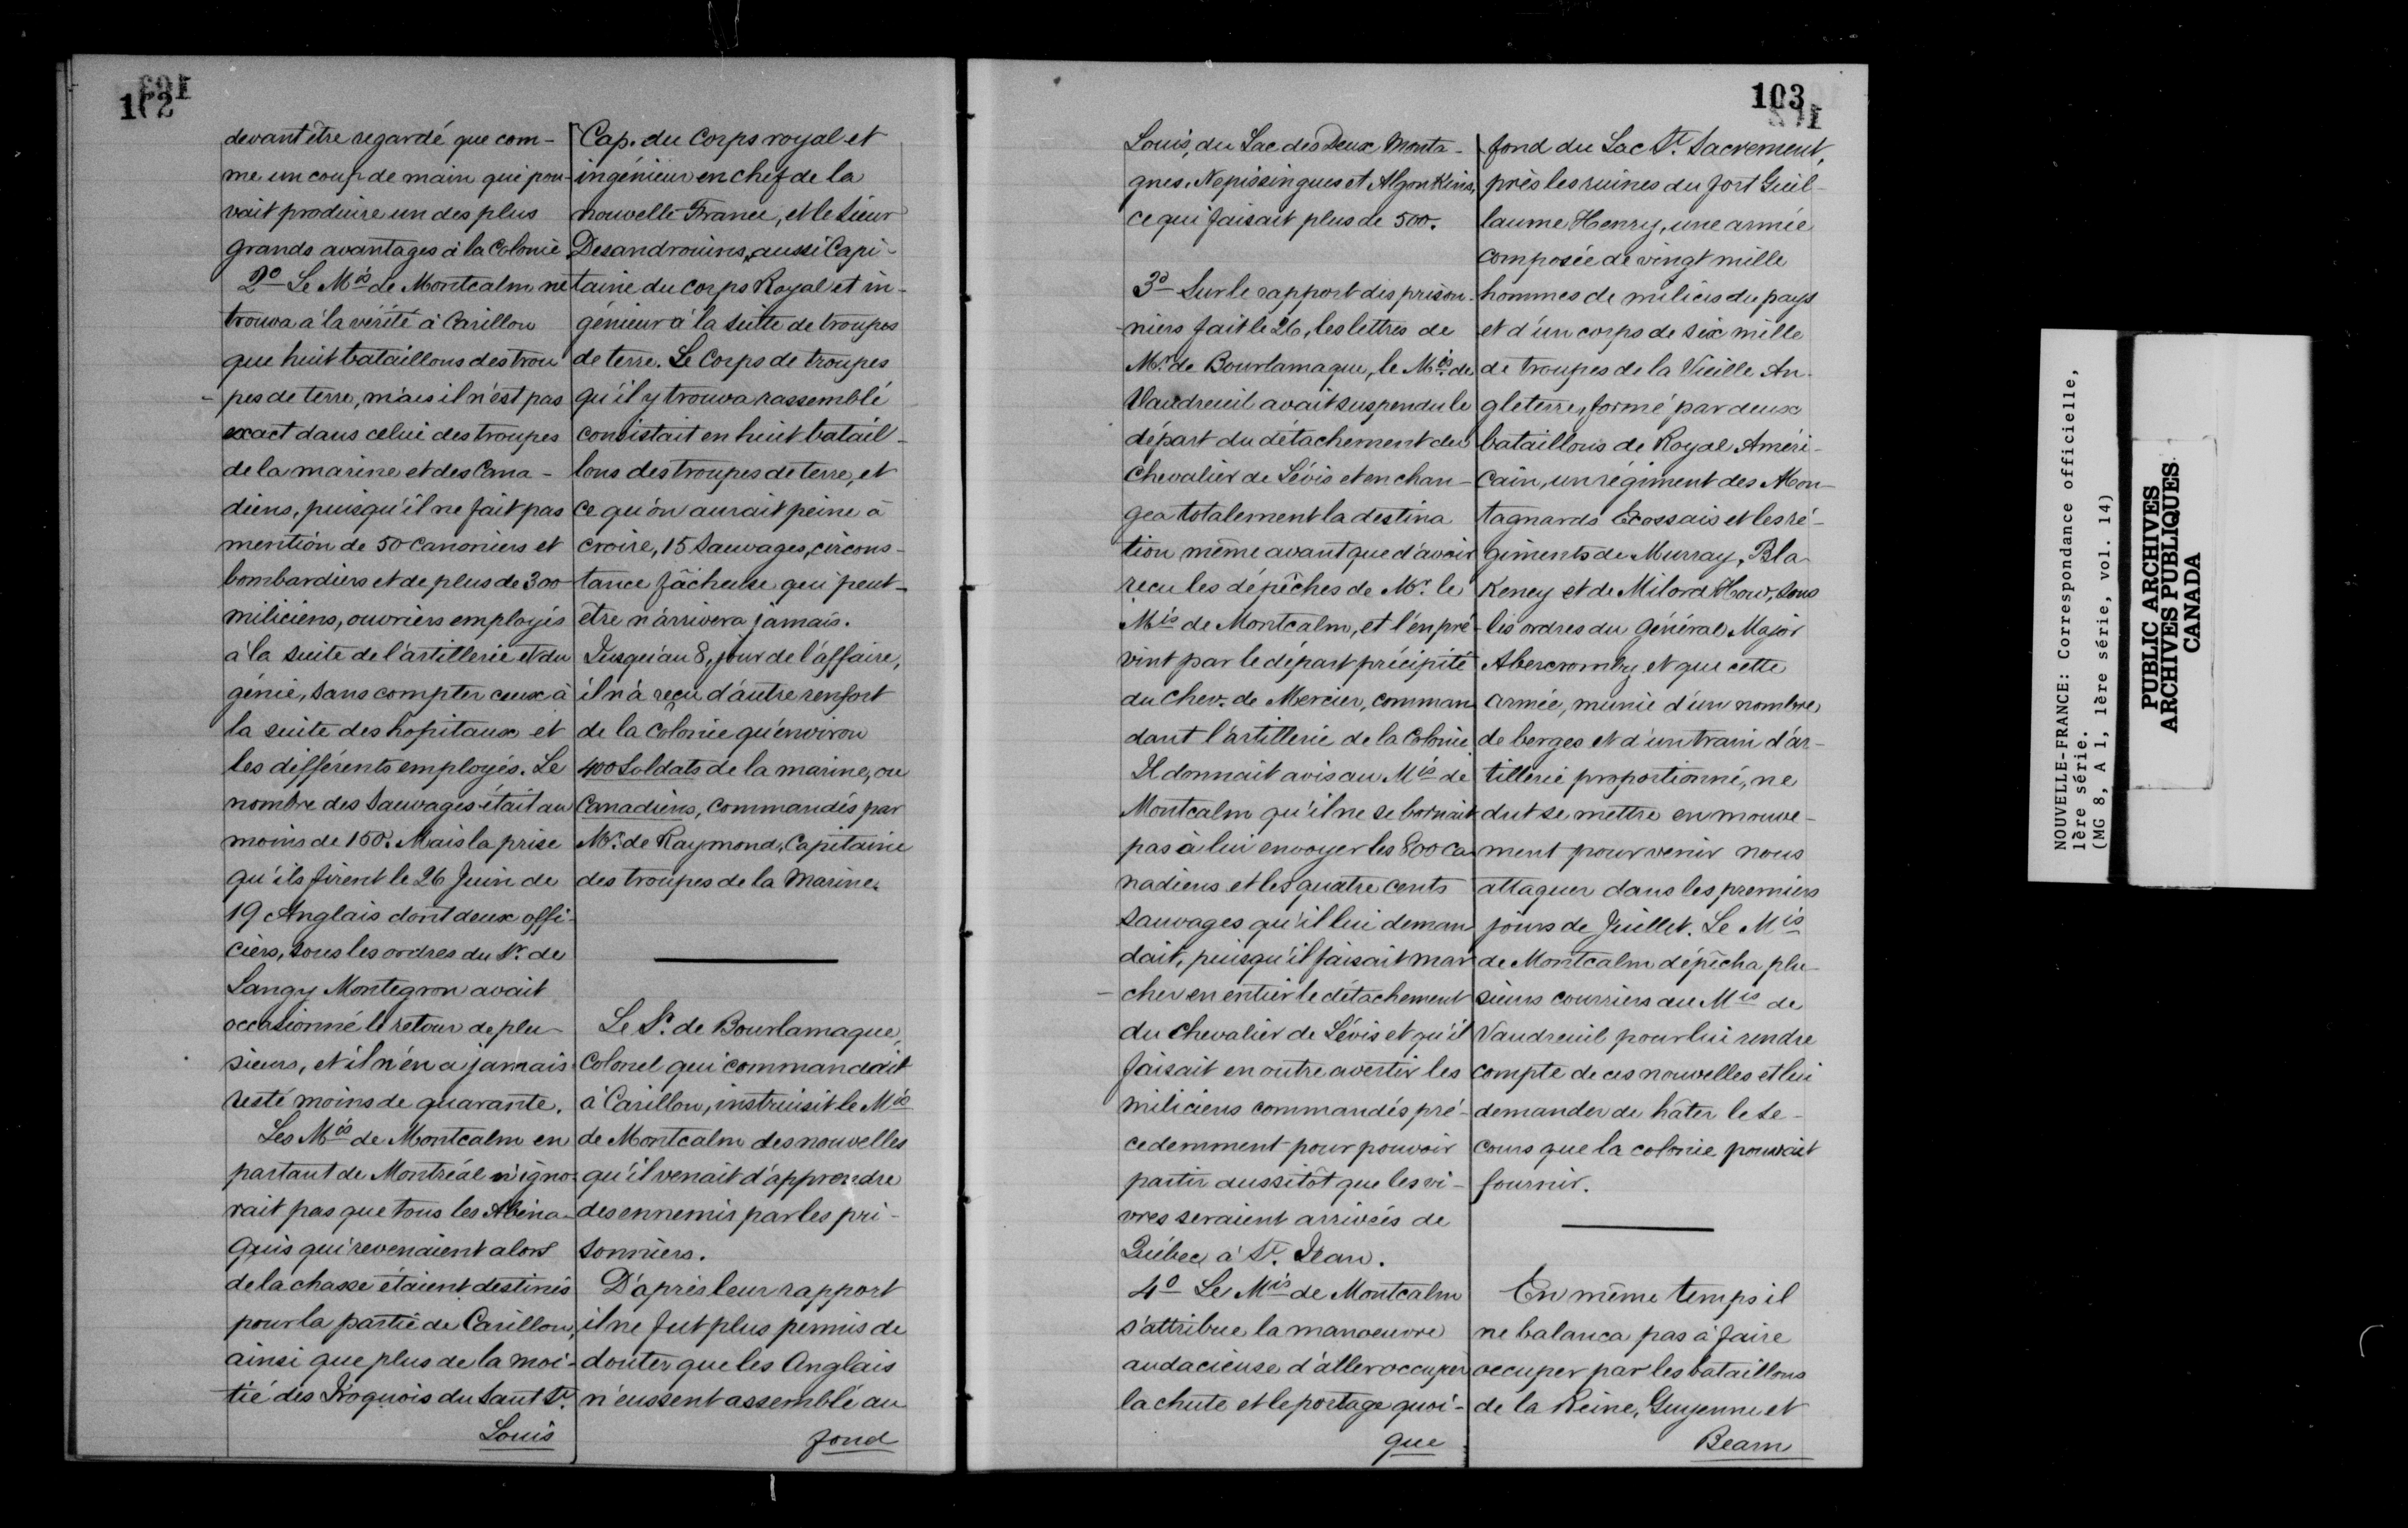 102
devant être regardé que com-
me un coup de main qui pou-
vait produire un des plus
grands avantages à la Colonie
2o Le Mis de Montcalm ne
trouva à la vérité à Carillon
que huit bataillons des trou
pes de terre, mais il n'est pas
exact dans celui des troupes
de la marine et des Cana-
diens, puisqu'il ne fait pas
mention de 50 canoniers et
bombardiers et de plus de 300
miliciens, ouvriers employés
à la suite de l'artillerie et du
génie, sans compter ceux à
la suite des hopitaux et
les différents employés. Le
nombre des Sauvages était au
moins de 150. Mais la prise
qu'ils firent le 26 Juin de
19 Anglais dont deux offi-
ciers, sous les ordres du Sr. de
Langy Montegron avait
occasionné le retour de plu-
sieurs, et il n'en a jamais
resté moins de quarante.
Les Mis de Montcalm en
partant de Montréal n'igno-
rait pas que tous les Abéna-
quis qui revenaient alors
de la chasse étaient destinés
pour la partie de Carillon,
ainsi que plus de la moi-
tié des Iroquois du Saut St.
Louis
Cap. du Corps royal et
ingénieur en chef de la
nouvelle France, et le Sieur
Desandrouins, aussi Capi-
taine du corps Royal et in-
génieur à la suite de troupes
de terre. Le Corps de troupes
qu'il y trouva rassemblé
consistait en huit batail-
lons des troupes de terre, et
ce qu'on aurait peine à
croire, 15 Sauvages, circons-
tance fâcheuse qui peut-
être n'arrivera jamais.
Jusqu'au 8, jour de l'affaire,
il n'a reçu d'autre renfort
de la Colonie qu'environ
400 Soldats de la marine, ou
Canadiens, commandés par
Mr. de Raymond, Capitaine
des troupes de la Marine.
Le Sr. de Bourlamaque,
Colonel qui commandait
à Carillon, instruisit le Mis
de Montcalm des nouvelles
qu'il venait d'apprendre
des ennemis par les pri-
sonniers.
D'après leur rapport
il ne fut plus permis de
douter que les Anglais
n'eussent assemblé au
fond
103
Louis, du Lac des Deux Monta-
gnes, Nepissingues et Algonkins,
ce qui faisait plus de 500.
3o Sur le rapport des prison-
niers fait le 26, les lettres de
Mr. de Bourlamaque, le Mis. de
Vaudreuil avait suspendu le
départ du détachement du
Chevalier de Lévis et en chan-
gea totalement la destina
tion même avant que d'avoir
reçu les dépêches de Mr. le
Mis de Montcalm, et l'en pré-
vint par le départ précipité
du Chev. de Mercier, comman
dant l'artillerie de la Colonie.
Il donnait avis au Mis de
Montcalm qu'il ne se bornait
pas à lui envoyer les 800 Ca
nadiens et les quatre cents
Sauvages qu'il lui deman
dait, puisqu'il faisait mar
cher en entier le détachement
du Chevalier de Lévis et qu'il
faisait en outre avertir les
miliciens commandés pré-
cedemment pour pouvoir
partir aussitôt que les vi-
vres seraient arrivés de
Québec à St. Jean.
4o Le Mis de Montcalm
s'attribue la manoeuvre
audacieuse d'aller occuper
la chute et le portage quoi-
que
fond du Lac St. Sacrement,
près les ruines du fort Guil-
laume Henry, une armée
composée de vingt mille
hommes de milices du pays
et d'un corps de six mille
de troupes de la Vieille An-
gleterre, formé par deux
bataillons de Royal Améri-
cain, un régiment des Mon-
tagnards Ecossais et les ré-
giments de Murray, Bla-
keney et de Milord How, sous
les ordres du Général Major
Abercromby et que cette
armée, munie d'un nombre
de berges et d'un train d'ar-
tillerie proportionné, ne
dut se mettre en mouve-
ment pour venir nous
attaquer dans les premiers
jours de Juillet. Le Mis
de Montcalm dépêcha plu-
sieurs courriers au Mis de
Vaudreuil pour lui rendre
compte de ces nouvelles et lui
demander de hâter le se-
cours que la colonie pouvait
fournir.
En même temps il
ne balança pas à faire
occuper par les bataillons
de la Reine, Guyenne et
Bearn
NOUVELLE-FRANCE: Correspondance officielle,
1ère série.
(MG 8, A 1, 1ère série, vol. 14)
PUBLIC ARCHIVES
ARCHIVES PUBLIQUES
CANADA